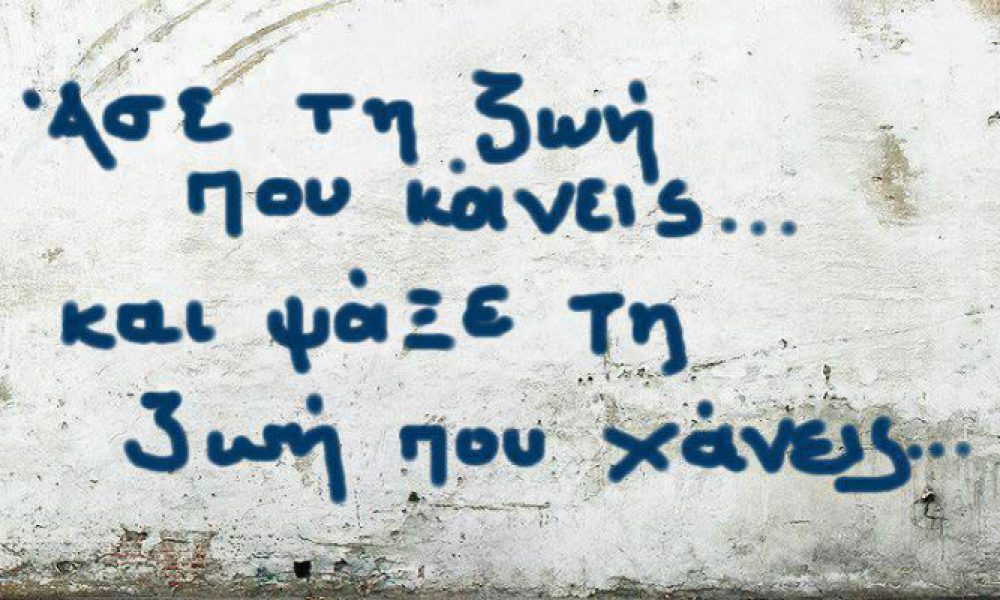 Άσε τη ζωή
που κάνεις...
και ψάξε τη
ζωή που χάνεις...